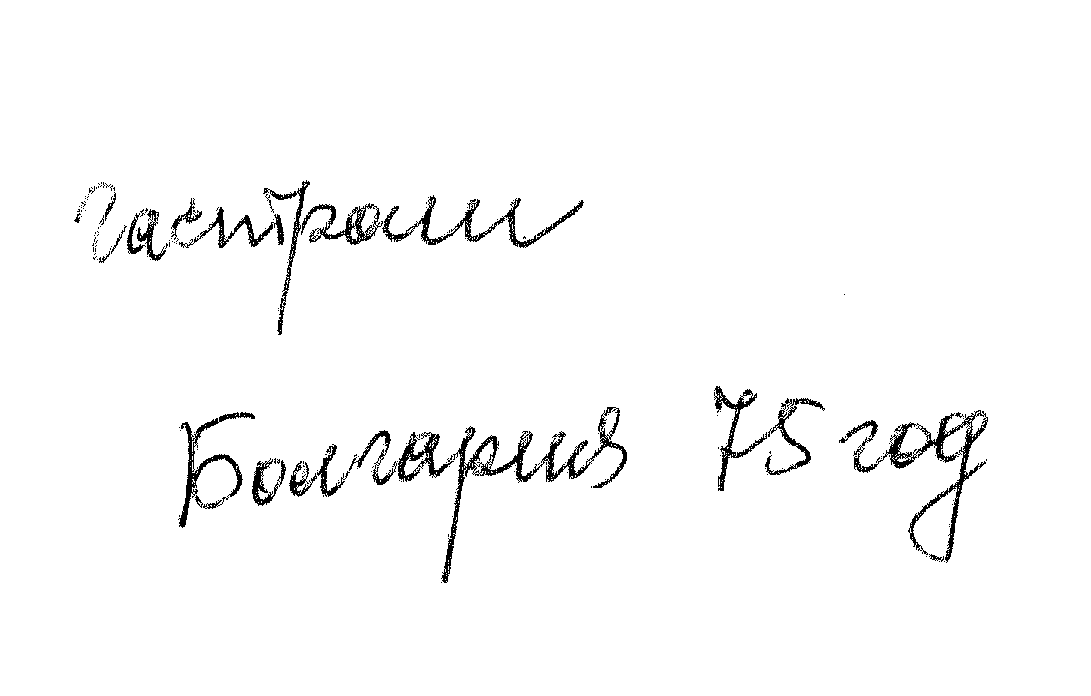 гастроли
Болгария 75 год